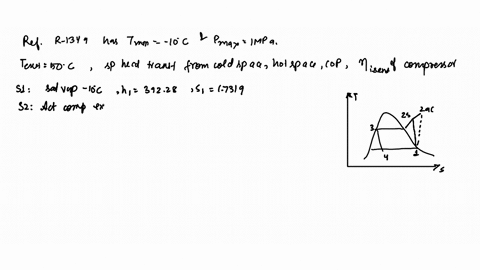 Ref. R-134a has Tmin = -10°C & Pmax = 1MPa.
Texit = 50°C, sp heat transf from cold space, hot space, COP, ηisen of compressor
S1: sat vap -10C, h1 = 392.28, S1 = 1.7319
S2: Act comp ex
T
2s 2ac
3
4 1
s